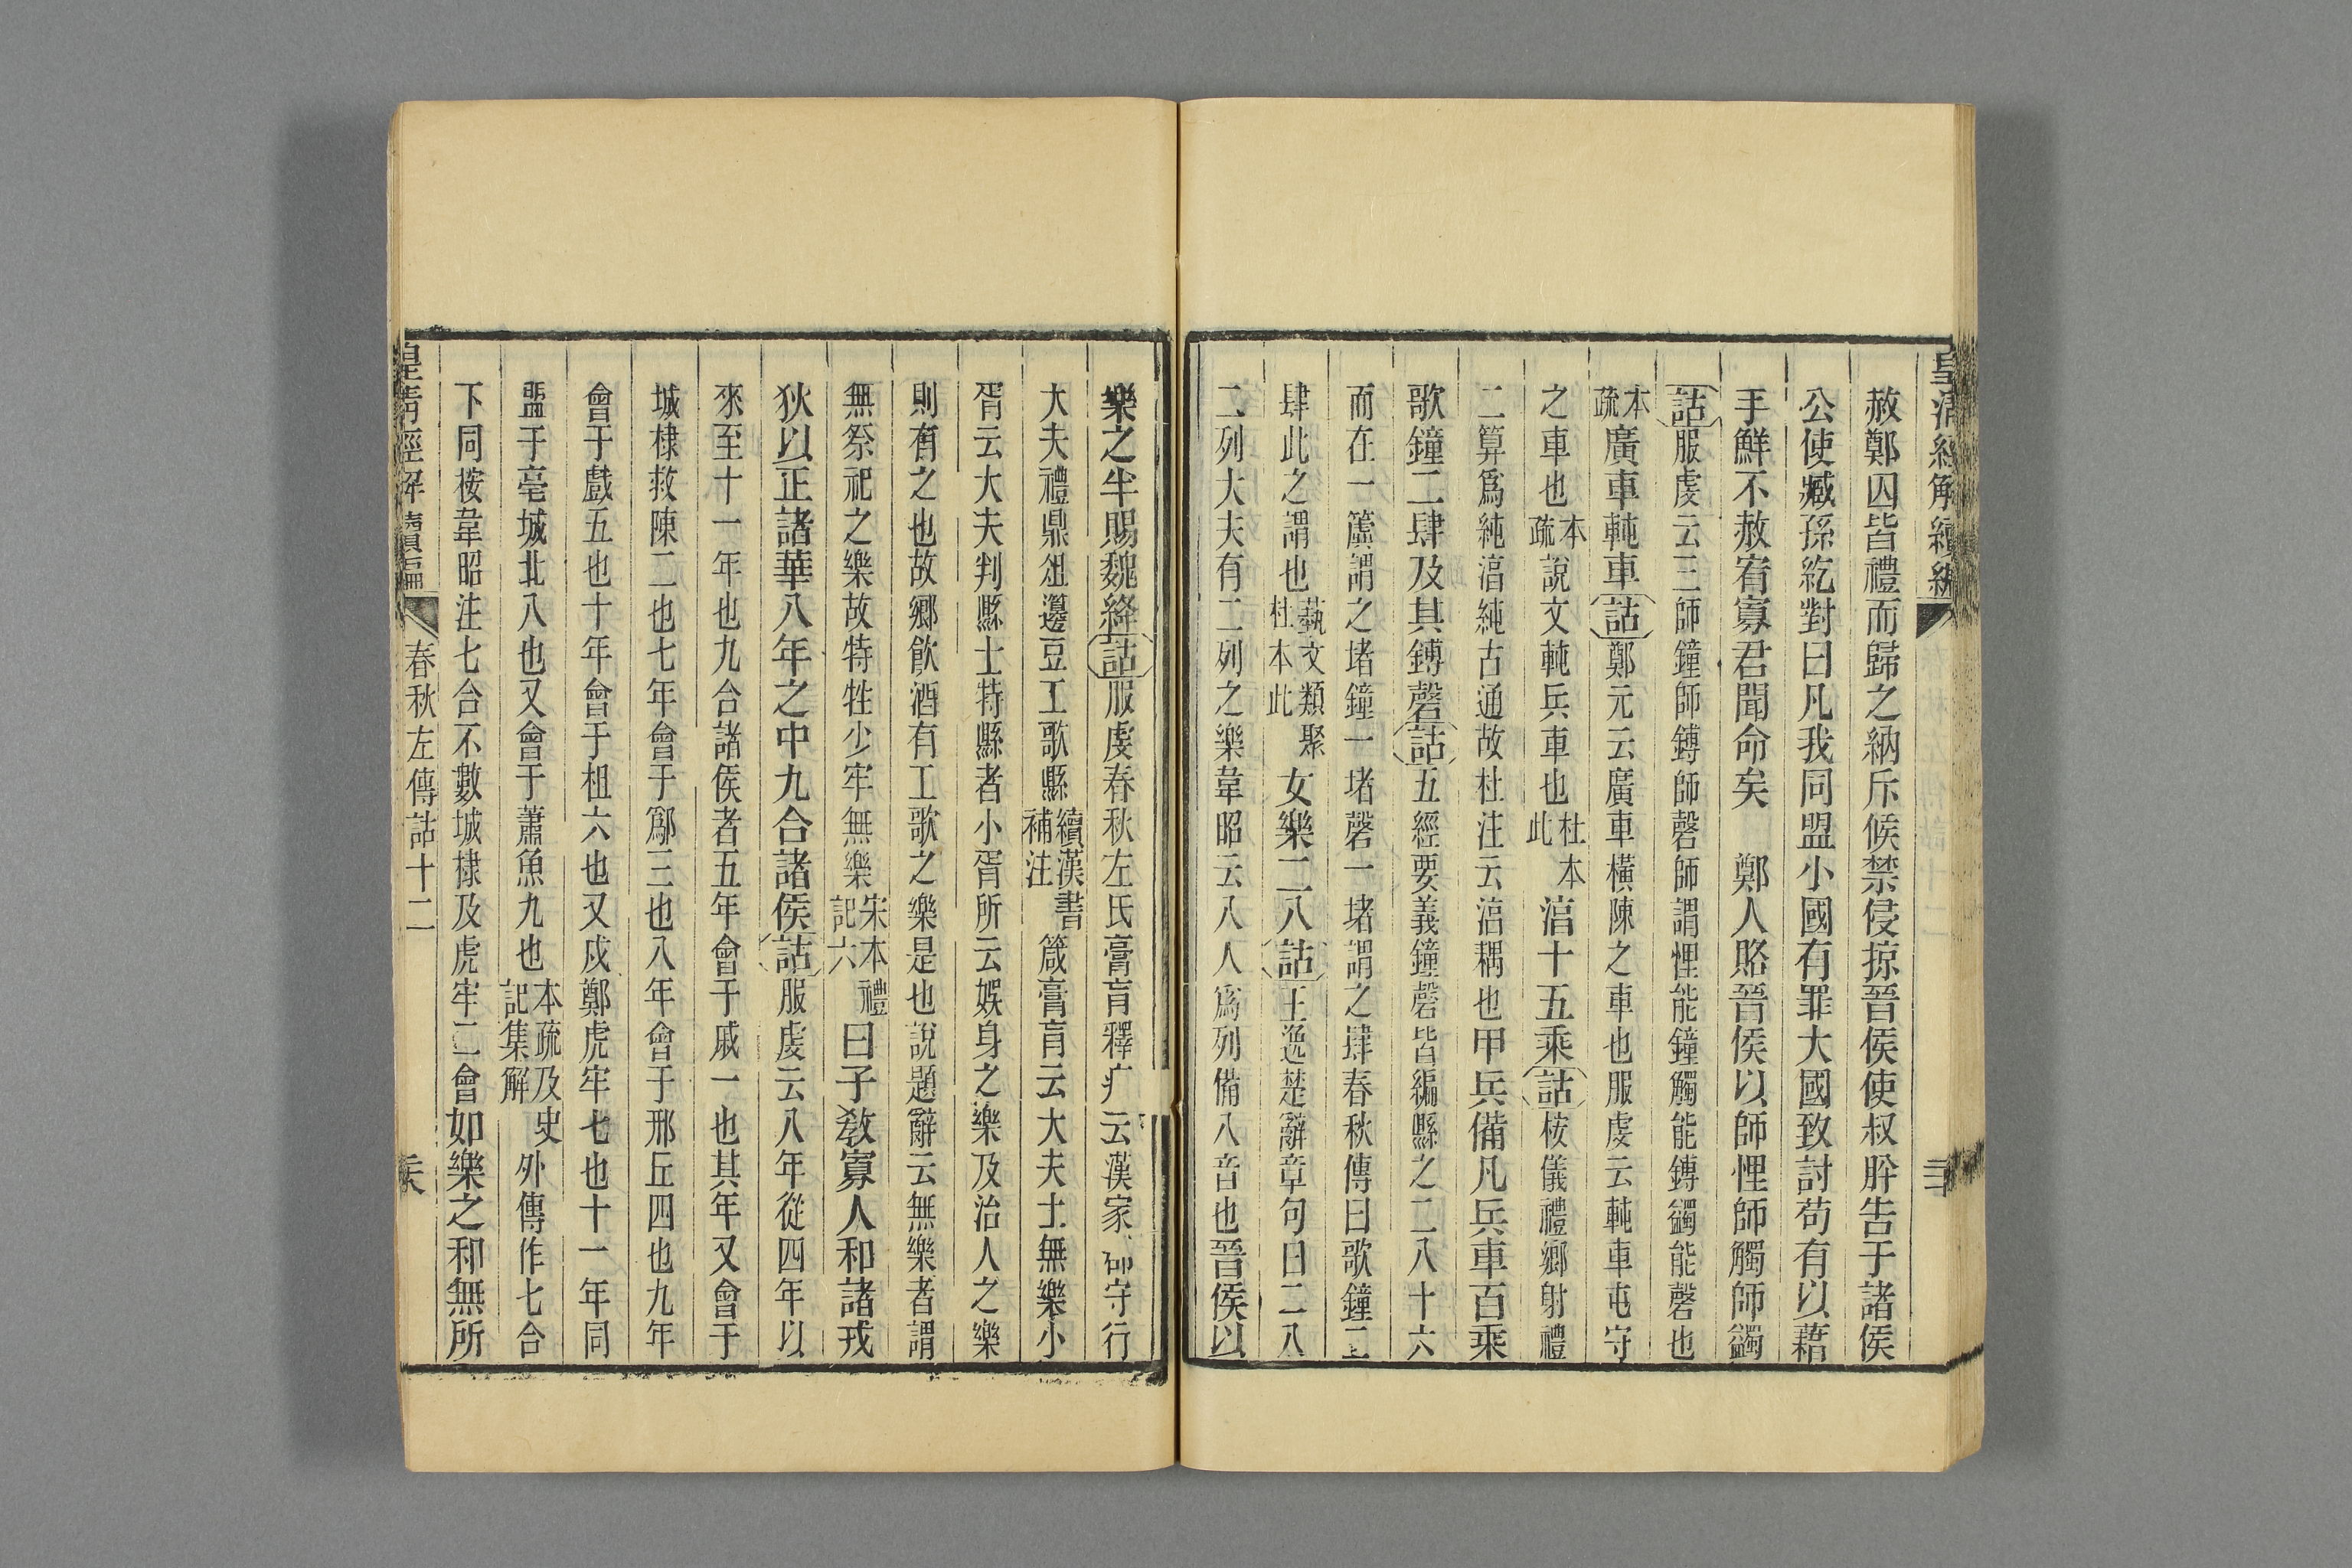 皇清經解續編
赦鄭囚皆禮而歸之納斥候禁侵掠晉侯使叔肸告于諸侯
公使臧孫紇對曰凡我同盟小國有罪大國致討苟有以藉
手鮮不赦宥寡君聞命矣　鄭人賂晉侯以師悝師觸師蠲
詁服虔云三師鐘師師鎛師磬師謂悝能鐘觸能鎛蠲能磬也
本疏廣車軘車詁鄭元云廣車橫陳之車也服虔云軘車屯守
之車也本疏說文軘兵車也杜本此淳十五乘詁桉儀禮鄉射禮
二算為純淳純古通故杜注云淳耦也甲兵備凡兵車百乘
歌鐘二肆及其鎛磬詁五經要義鐘磬皆編縣之二八十六
而在一簴謂之堵鐘一堵磬一堵謂之肆春秋傳曰歌鐘二
肆此之謂也藝文類聚杜本此女樂二八詁王逸楚辭章句曰二八
二列大夫有二列之樂韋昭云八人為列備八音也晉侯以
樂之半賜魏絳詁服虔春秋左氏膏肓釋疒云漢家守行
大夫禮鼎俎籩豆工歌縣續漢書補注箴膏肓云大夫士無樂小
胥云大夫判縣士特縣者小胥所云娛身之樂及治人之樂
則有之也故鄉飲酒有工歌之樂是也說題辭云無樂者謂
無祭祀之樂故特牲少牢無樂宋本禮記六曰子教寡人和諸戎
狄以正諸華八年之中九合諸侯詁服虔云八年從四年以
來至十一年也九合諸侯者五年會于戚一也其年又會于
城棣救陳二也七年會于鄬三也八年會于邢丘四也九年
會于戲五也十年會于柤六也又戍鄭虎牢七也十一年同
盟于亳城北八也又會于蕭魚九也本疏及史記集解外傳作七合
下同桉韋昭注七合不數城棣及虎牢二會如樂之和無所
皇清經解續編　春秋左傳詁十二